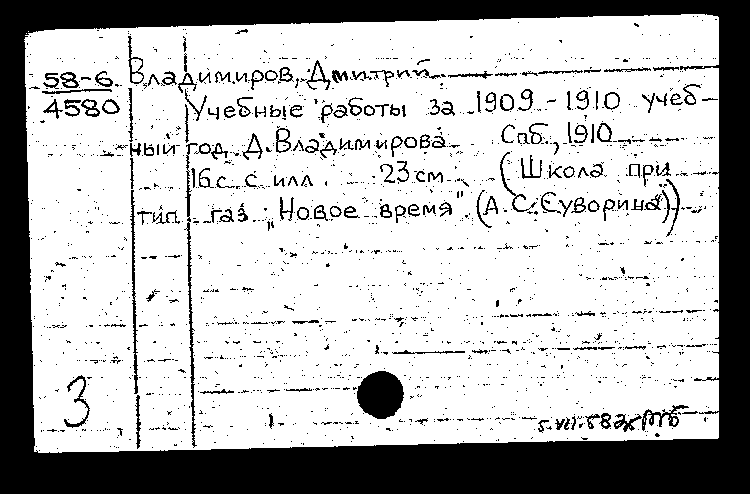 58-6 Владимиров, Дмитрий
4580 Учебные работы за 1909-1910 учеб-
ный год Д. Владимирова Спб., 1910
16 с. с илл. 23 см (Школа при
тип газ „Новое время" (А. С. Суворина))
3
5.VII.58